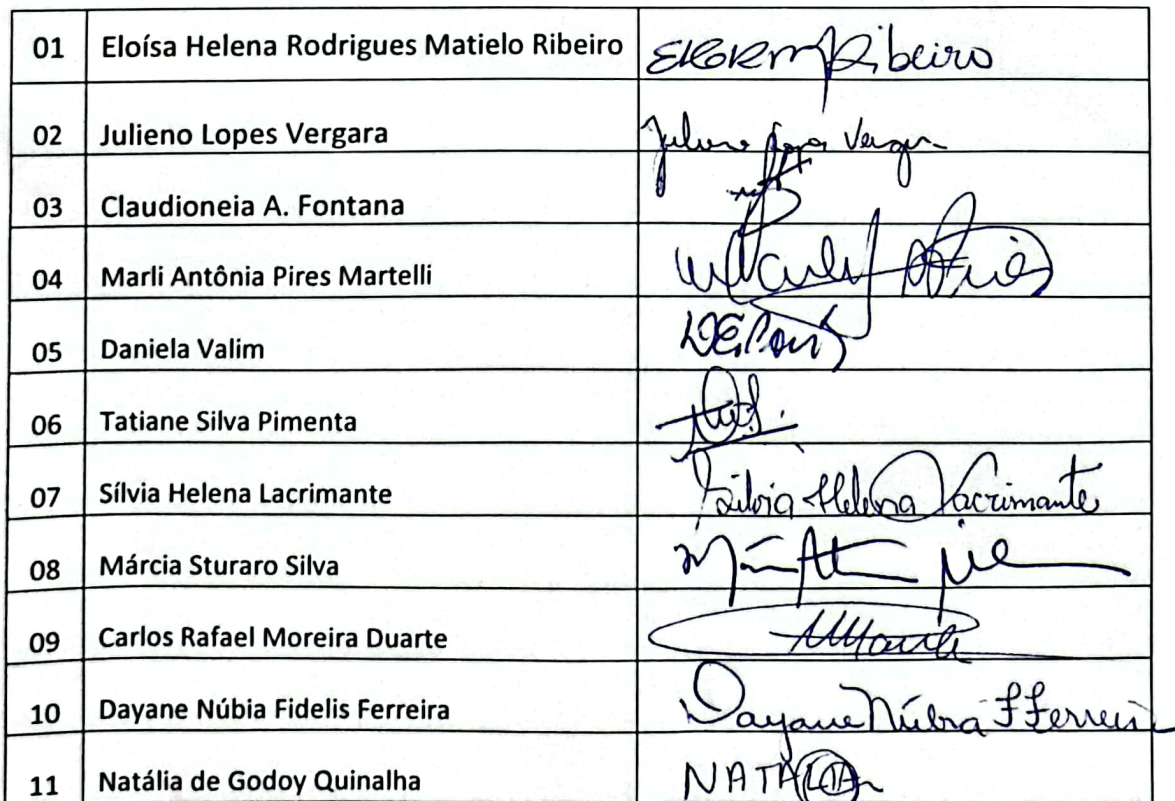 01 Eloísa Helena Rodrigues Matielo Ribeiro Ribeiro
02 Julieno Lopes Vergara
03 Claudioneia A. Fontana
04 Marli Antônia Pires Martelli
05 Daniela Valim
06 Tatiane Silva Pimenta
07 Sílvia Helena Lacrimante Silvia Helena Lacrimante
08 Márcia Sturaro Silva
09 Carlos Rafael Moreira Duarte
10 Dayane Núbia Fidelis Ferreira Dayane Núbia F Ferreira
11 Natália de Godoy Quinalha NATALIA